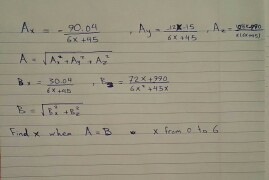 Ax = - 90.04 / 6x+45 , Ay = 12x-15 / 6x+45 , Az =
A = √Ax²+Ay²+Az²
Bx = 30.04 / 6x+45 , B = 72x+990 / 6x²+45x
B = √Bx²+Bz²
Find x when A=B x from 0 to 6